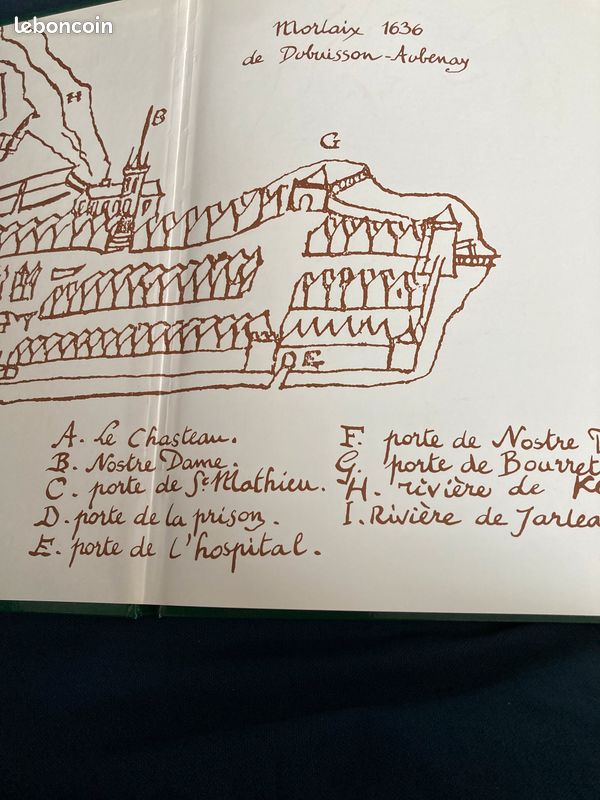 leboncoin
Morlaix 1636
de Dubuisson-Aubenay
H
B
G
E
A. Le Chasteau.
B. Nostre Dame.
C. porte de St Mathieu.
D. porte de la prison.
E. porte de l'hospital.
F. porte de Nostre
G. porte de Bourret
H. rivière de
I. Rivière de Jarlea